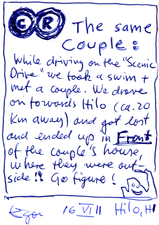 C R The same
Couple:
While driving on the "Scenic
Drive" we took a swim +
met a couple. We drove
on towards Hilo (ca. 20
km away) and got lost
and ended up in Front
of the couple's house,
where they were out-
side!! Go figure!
Egon 16 VII Hilo, HI